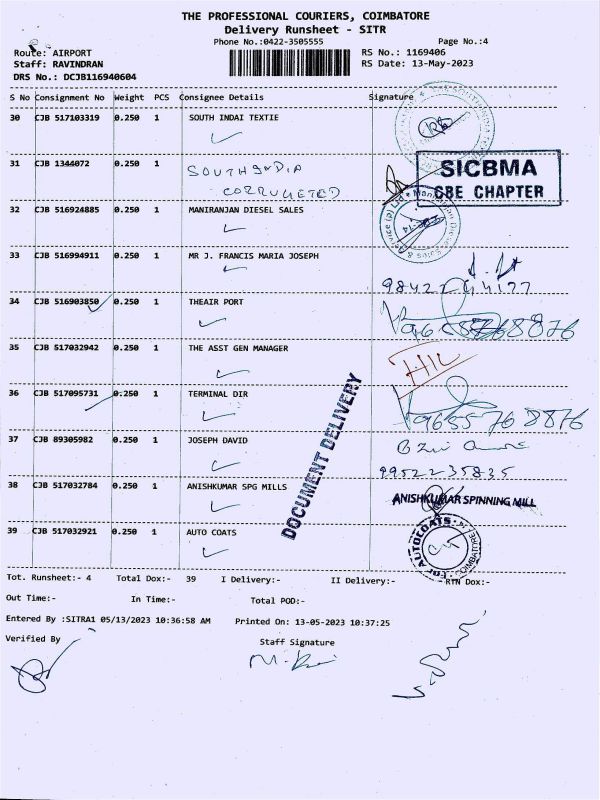 THE PROFESSIONAL COURIERS, COIMBATORE
Delivery Runsheet - SITR
Phone No.:0422-3505555 Page No.:4
Route: AIRPORT RS No.: 1169406
Staff: RAVINDRAN RS Date: 13-May-2023
DRS No.: DCJB116940604
S No Consignment No Weight PCS Consignee Details Signature
30 CJB 517103319 0.250 1 SOUTH INDAI TEXTIE
31 CJB 1344072 0.250 1 SOUTH INDIA
CORRUGETED
SICBMA
CBE CHAPTER
32 CJB 516924885 0.250 1 MANIRANJAN DIESEL SALES
33 CJB 516994911 0.250 1 MR J. FRANCIS MARIA JOSEPH
34 CJB 516903850 0.250 1 THEAIR PORT
35 CJB 517032942 0.250 1 THE ASST GEN MANAGER
36 CJB 517095731 0.250 1 TERMINAL DIR
37 CJB 89305982 0.250 1 JOSEPH DAVID
9952235835
DOCUMENT DELIVERY
38 CJB 517032784 0.250 1 ANISHKUMAR SPG MILLS
ANISHKUMAR SPINNING MILL
39 CJB 517032921 0.250 1 AUTO COATS
FOR AUTOCOATS
Tot. Runsheet:- 4 Total Dox:- 39 I Delivery:- II Delivery:- RTN Dox:-
Out Time:- In Time:- Total POD:-
Entered By :SITRA1 05/13/2023 10:36:58 AM Printed On: 13-05-2023 10:37:25
Verified By Staff Signature